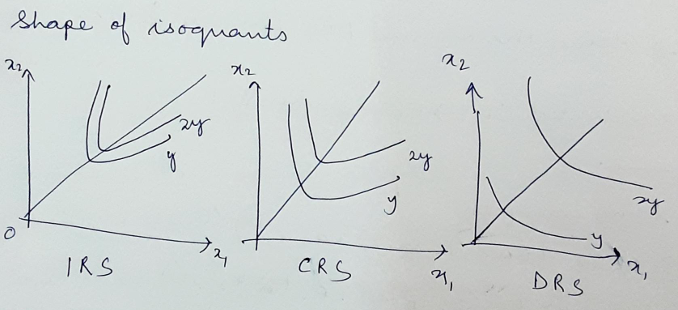 Shape of isoquants
x2
2y
y
O
x1
IRS
x2
2y
y
x1
CRS
x2
2y
y
x1
DRS